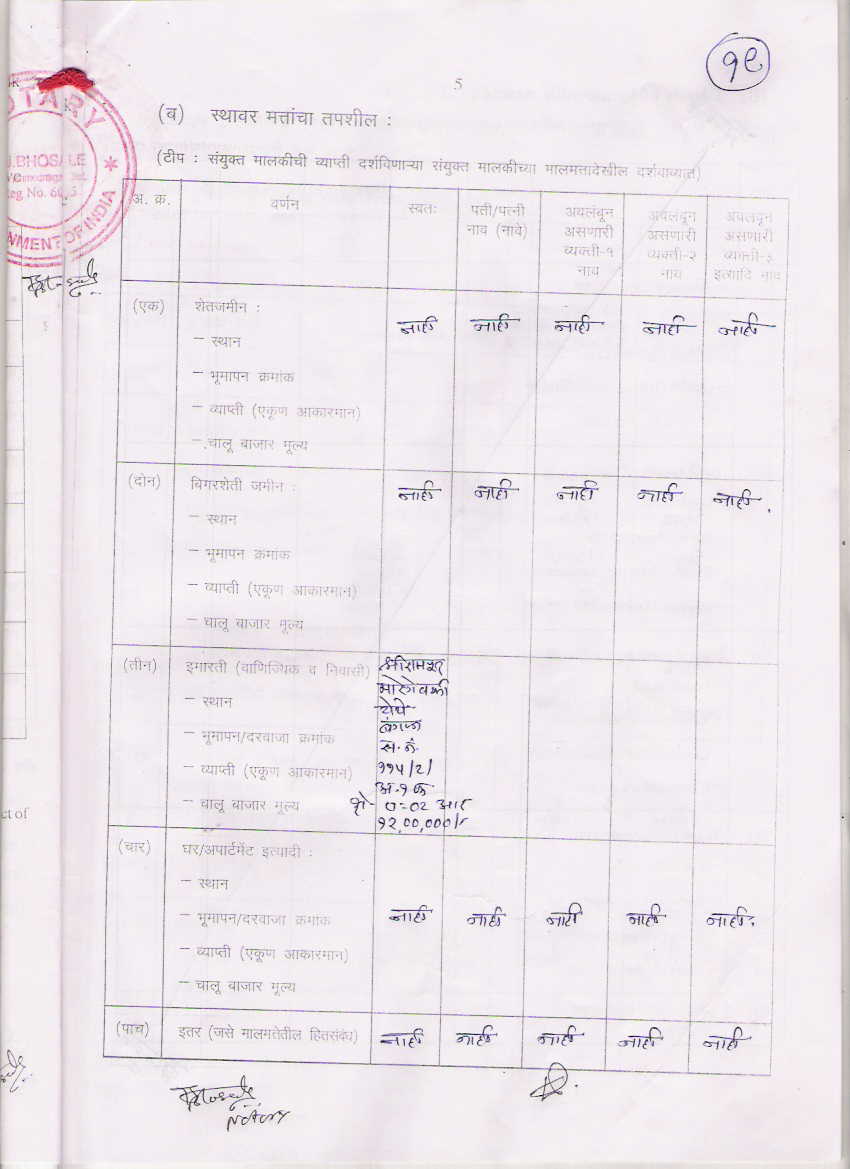 १९
5
(ब) स्थावर मत्तांचा तपशील :
(टीप : संयुक्त मालकीची व्याप्ती दर्शविणाऱ्या संयुक्त मालकीच्या मालमत्तादेखील दर्शवाव्यात)
NOTARY
J.BHOSALE
Reg No.
GOVERNMENT OF INDIA
अ. क्र. वर्णन स्वतः पती/पत्नी नाव (नावे) अवलंबून असणारी व्यक्ती-१ नाव अवलंबून असणारी व्यक्ती-२ नाव अवलंबून असणारी व्यक्ती-३ इत्यादि नाव
(एक) शेतजमीन :
नाही नाही नाही नाही नाही
– स्थान
– भूमापन क्रमांक
– व्याप्ती (एकूण आकारमान)
– चालू बाजार मूल्य
(दोन) बिगरशेती जमीन :
नाही नाही नाही नाही नाही.
– स्थान
– भूमापन क्रमांक
– व्याप्ती (एकूण आकारमान)
– चालू बाजार मूल्य
(तीन) इमारती (वाणिज्यिक व निवासी)
– स्थान
येथे
– भूमापन/दरवाजा क्रमांक
स.नं.
– व्याप्ती (एकूण आकारमान) ११५/2/
– चालू बाजार मूल्य
०=०2 आर
१२,००,०००/-
(चार) घर/अपार्टमेंट इत्यादी :
– स्थान
– भूमापन/दरवाजा क्रमांक नाही नाही नाही नाही नाही.
– व्याप्ती (एकूण आकारमान)
– चालू बाजार मूल्य
(पाच) इतर (जसे मालमत्तेतील हितसंबंध) नाही नाही नाही नाही नाही
NOTARY
ct of